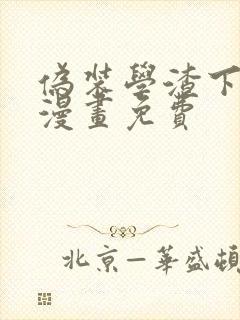 偽裝學渣下
漫畫免費
北京—華盛頓